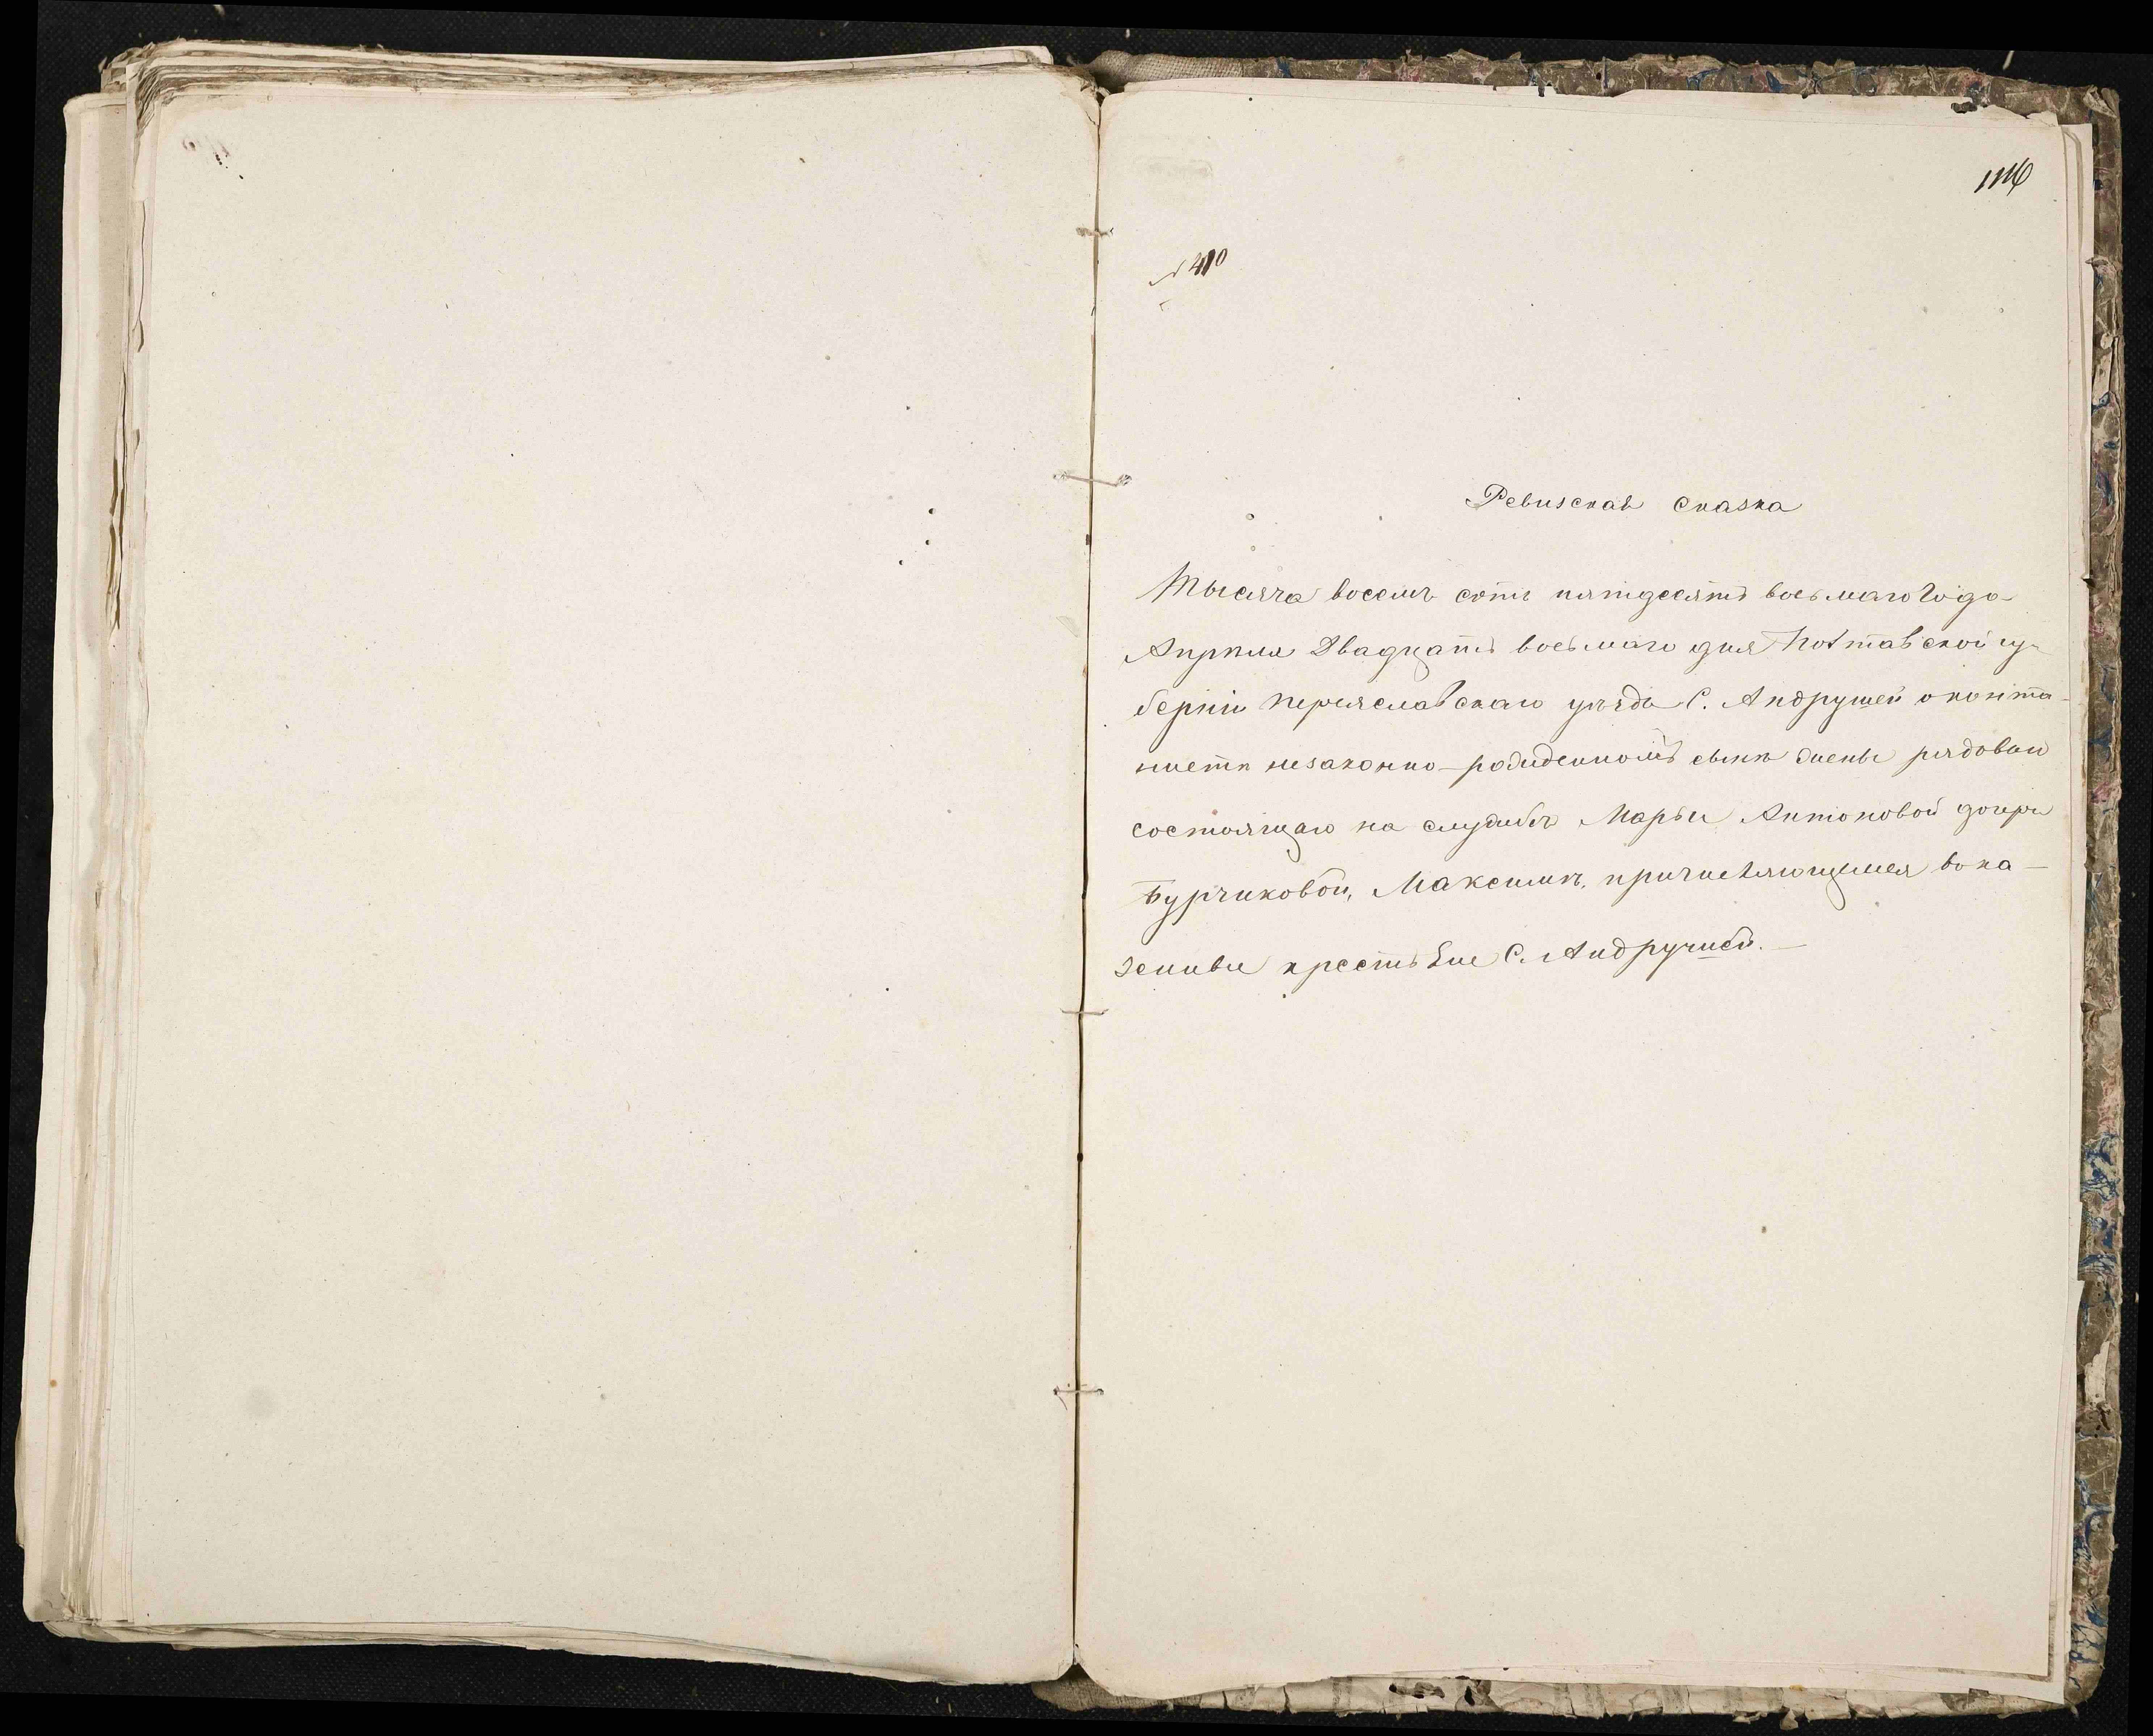 1116
№ 410
Ревизская Сказка
Тысяча восемь сотъ пятдесятъ восьмаго года
Апрѣля Двадцать восьмаго дня Полтавской гу-
берніи Переяславскаго уѣзда С. Андрушей о канто-
нистѣ незаконно-рожденномъ сынѣ жены рядоваго
состоящаго на службѣ Марьи Антоновой дочери
Бурчиковой, Максимѣ, причисляющемся въ ка-
зенные крестьяне С. Андрушей.—